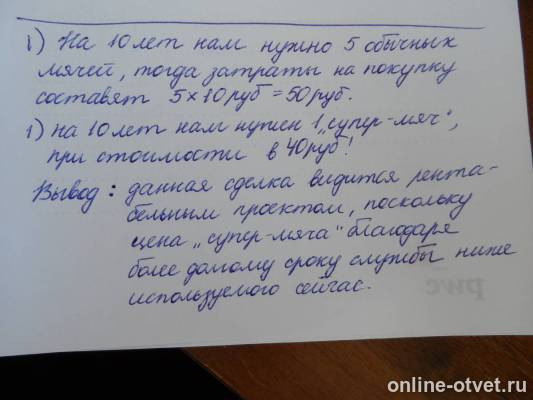 1) На 10 лет нам нужно 5 обычных
мячей, тогда затраты на покупку
составят 5×10руб=50руб.
1) на 10 лет нам нужен 1 „супер-мяч",
при стоимости в 40руб!
Вывод: данная сделка видится рента-
бельным проектом, поскольку
цена „супер-мяча" благодаря
более домому сроку службы ниже
используемого сейчас.
pwc
online-otvet.ru